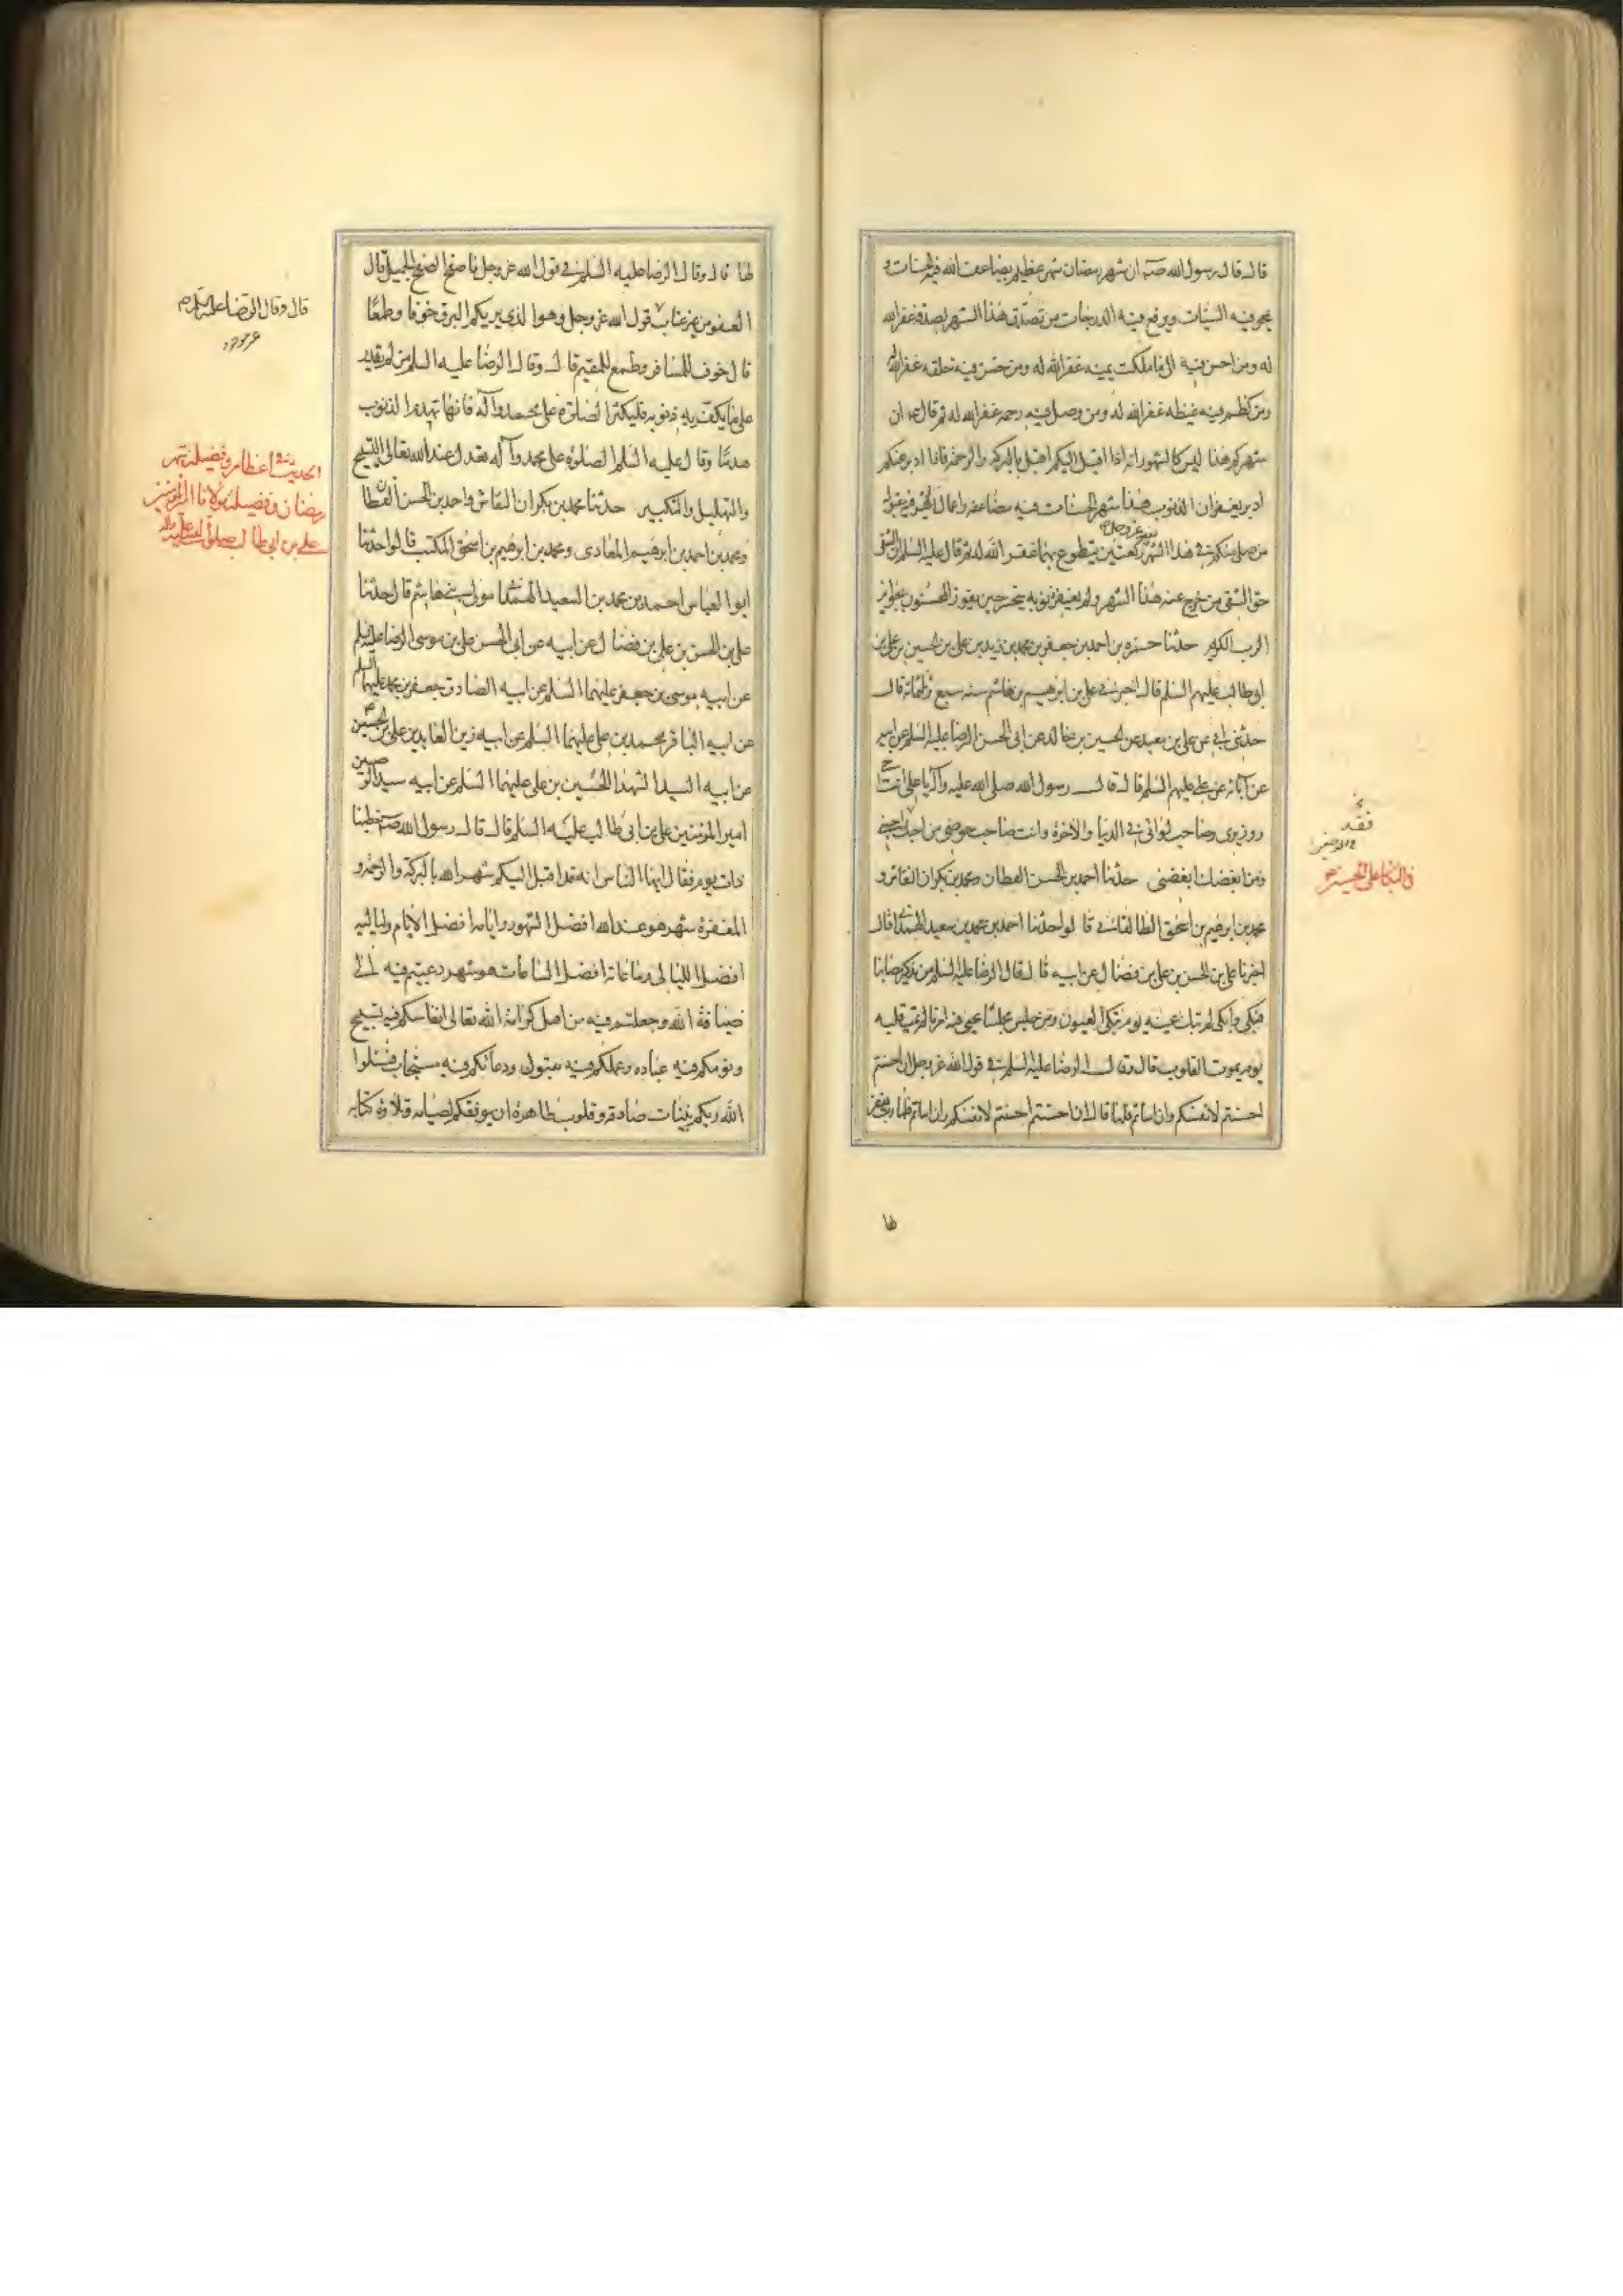 قال قال رسول الله صلى ان شهر رمضان شهر عظيم يضاعف الله فيه الحسنات و
يمحو فيه السيئات ويرفع فيه الدرجات من تصدق هذا الشهر بصدقة غفر الله
له ومن احسن فيه الى ما ملكت يمينه غفر الله له ومن حسن فيه خلقه غفر الله له
ومن كظم فيه غيظه غفر الله له ومن وصل فيه رحمه غفر الله له ثم قال ان
شهركم هذا ليس كالشهور انه اذا اقبل اليكم اقبل بالبركة والرحمة واذا ادبر عنكم
ادبر بغفران الذنوب هذا شهر الحسنات فيه مضاعفة واعمال الخير فيه مقبولة
من صلى منكم في هذا الشهر لله عز وجل ركعتين يتطوع بهما غفر الله له ثم قال عليه السلم ان الشقى
حق الشقى من خرج عنه هذا الشهر ولم يغفر ذنوبه حين يفوز المحسنون بجوائز
الرب الكريم حدثنا حمزه بن احمد بن جعفر بن محمد بن زيد بن على بن الحسين بن على بن
ابى طالب عليهم السلم قال اخبرنى على بن ابرهيم بن هاشم سنه سبع وثلثمائة قال
حدثنى ابى عن على بن معبد عن الحسين بن خالد عن ابى الحسن الرضا عليه السلم عن ابيه
عن آبائه عن على عليهم السلم قال قال رسول الله صلى الله عليه وآله يا على انت اخى
ووزيرى وصاحب لوائى فى الدنيا والآخرة وانت صاحب حوضى من احبك احبنى
ومن ابغضك ابغضنى حدثنا احمد بن الحسن القطان ومحمد بن بكران النقاش و
محمد بن ابرهيم بن اسحق الطالقانى قالوا حدثنا احمد بن محمد بن سعيد الهمدانى قال
اخبرنا على بن الحسن بن على بن فضال عن ابيه قال قال الرضا عليه السلم من تذكر مصابنا
فبكى وابكى لم تبك عينه يوم تبكى العيون ومن جلس مجلسا يحيى فيه امرنا لم يمت قلبه
يوم يموت القلوب قال وقال الرضا عليه السلم فى قول الله عز وجل ان احسنتم
احسنتم لانفسكم وان اساتم فلها قال ان احسنتم احسنتم لانفسكم وان اساتم فلها رب يغفر
لها
فى البكا على الحسين ع
لها قال وقال الرضا عليه السلم فى قول الله عز وجل فاصفح الصفح الجميل قال
العفو من غير عتاب قول الله عز وجل وهو الذى يريكم البرق خوفا وطمعا
قال خوف للمسافر وطمع للمقيم قال وقال الرضا عليه السلم من لم يقدر
على ما يكفر به ذنوبه فليكثر الصلوة على محمد وآله فانها تهدم الذنوب
هدما وقال عليه السلم الصلوة على محمد وآله تعدل عند الله تعالى التسبيح
والتهليل والتكبير حدثنا محمد بن بكران النقاش واحمد بن الحسن القطان
ومحمد بن احمد بن ابرهيم المعاذى ومحمد بن ابرهيم بن اسحق المكتب قالوا حدثنا
ابو العباس احمد بن محمد بن السعيد الهمدانى مولى بنى هاشم قال حدثنا
على بن الحسن بن على بن فضال عن ابيه عن ابى الحسن على بن موسى الرضا عليه السلم
عن ابيه موسى بن جعفر عليهما السلم عن ابيه الصادق جعفر بن محمد عليهما السلم
عن ابيه الباقر محمد بن على عليهما السلم عن ابيه زين العابدين على بن الحسين ع
عن ابيه السيد الشهدا الحسين بن على عليهما السلم عن ابيه سيد الوصيين
امير المؤمنين على بن ابى طالب عليه السلم قال قال رسول الله خطبنا
ذات يوم فقال ايها الناس انه قد اقبل اليكم شهر الله بالبركة والرحمة و
المغفرة شهر هو عند الله افضل الشهور وايامه افضل الايام ولياليه
افضل الليالى وساعاته افضل الساعات هو شهر دعيتم فيه الى
ضيافة الله وجعلتم فيه من اهل كرامة الله تعالى انفاسكم فيه تسبيح
ونومكم فيه عباده وعملكم فيه مقبول ودعائكم فيه مستجاب فسئلوا
الله ربكم بنيات صادقه وقلوب طاهرة ان يوفقكم لصيامه وتلاوة كتابه
قال وقال الرضا عليه السلام
الحديث فى اعظام وفضيلة شهر
رمضان وفضيلة مولانا امير المؤمنين
على بن ابى طالب صلوات الله عليه وآله